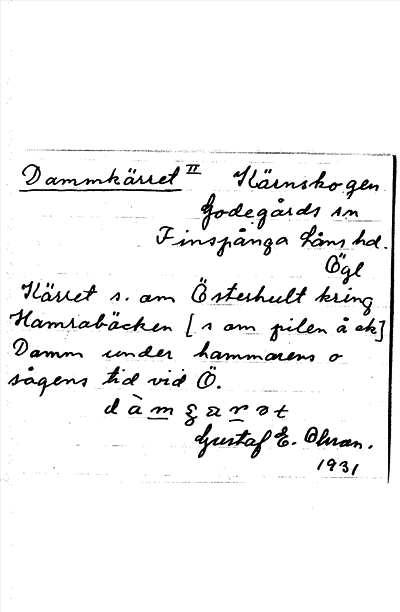 Dammkärret II Kärnskogen
Godegårds sn
Finspånga läns hd.
Ögl
Kärret s. om Österhult kring
Hamrabäcken [s om pilen å ek]
Damm under hammarens o
sågens tid vid Ö.
Gustaf E. Ohman.
1931